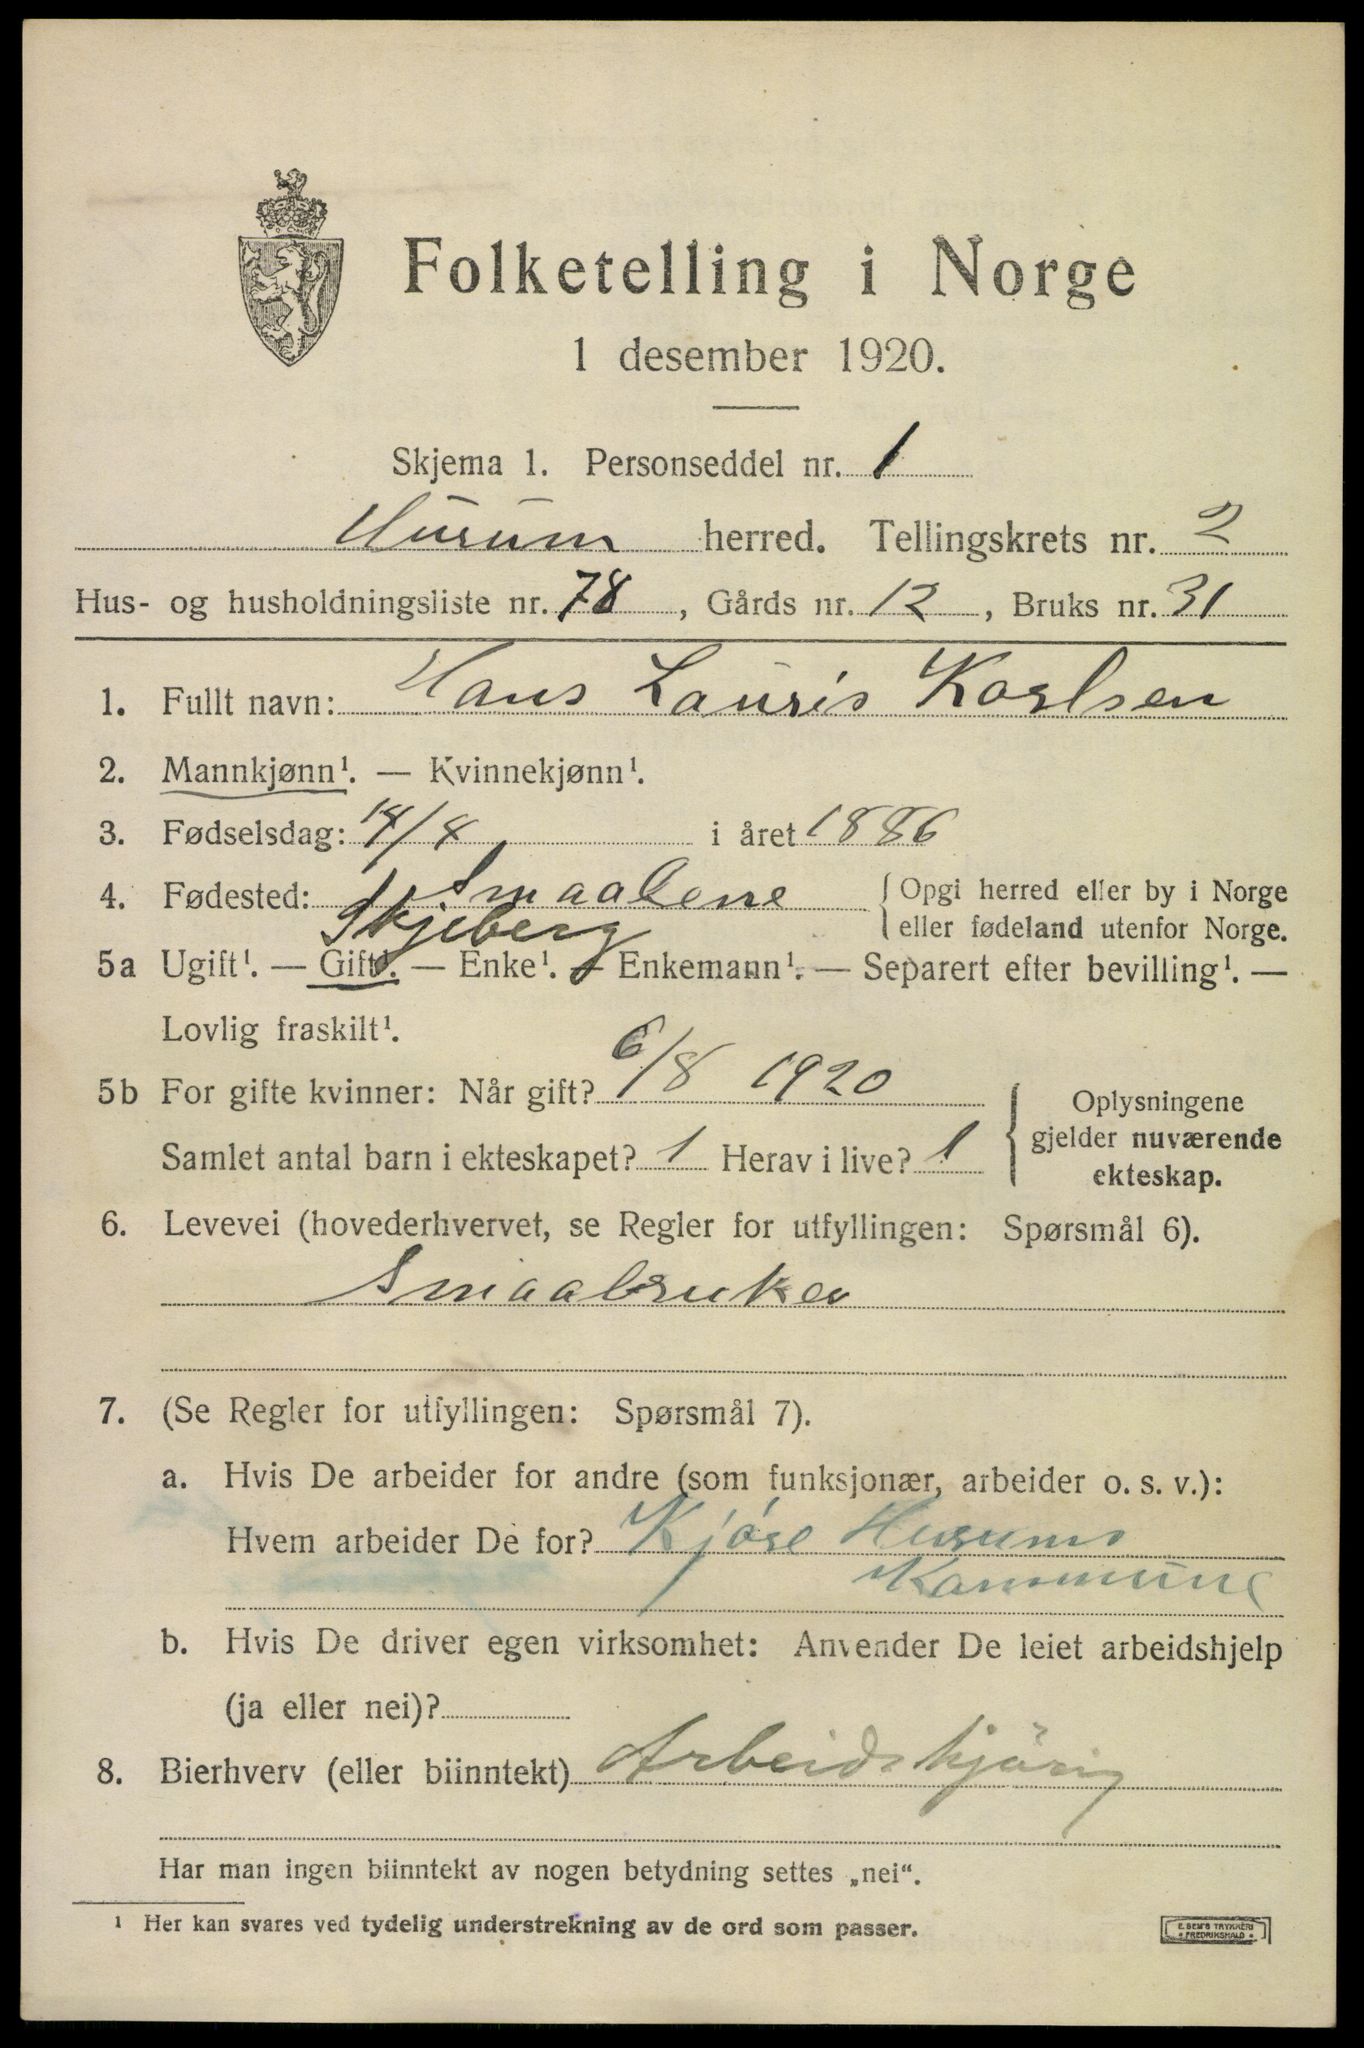 Folketelling i Norge
1 desember 1920.
Skjema 1. Personseddel nr. 1
Hurum herred. Tellingskrets nr. 2
Hus- og husholdningsliste nr. 78, Gårds nr. 12, Bruks nr. 31
1. Fullt navn: Hans Lauris Karlsen
2. Mannkjønn¹. — Kvinnekjønn¹.
3. Fødselsdag: 14/8 i året 1886
4. Fødested: Smaalene { Opgi herred eller by i Norge
Skjeberg eller fødeland utenfor Norge.
5a Ugift¹. — Gift¹. — Enke¹. — Enkemann¹. — Separert efter bevilling¹. —
Lovlig fraskilt¹.
5b For gifte kvinner: Når gift? 6/8 1920 { Oplysningene
gjelder nuværende
Samlet antal barn i ekteskapet? 1 Herav i live? 1
ekteskap.
6. Levevei (hovederhvervet, se Regler for utfyllingen: Spørsmål 6).
Smaabruker
7. (Se Regler for utfyllingen: Spørsmål 7).
a. Hvis De arbeider for andre (som funksjonær, arbeider o. s. v.):
Hvem arbeider De for? Kjøre Hurums
Kommune
b. Hvis De driver egen virksomhet: Anvender De leiet arbeidshjelp
(ja eller nei)?
8. Bierhverv (eller biinntekt) Arbeidskjöring
Har man ingen biinntekt av nogen betydning settes „nei“.
¹ Her kan svares ved tydelig understrekning av de ord som passer.
E. SEM'S TRYKKERI
FREDRIKSHALD